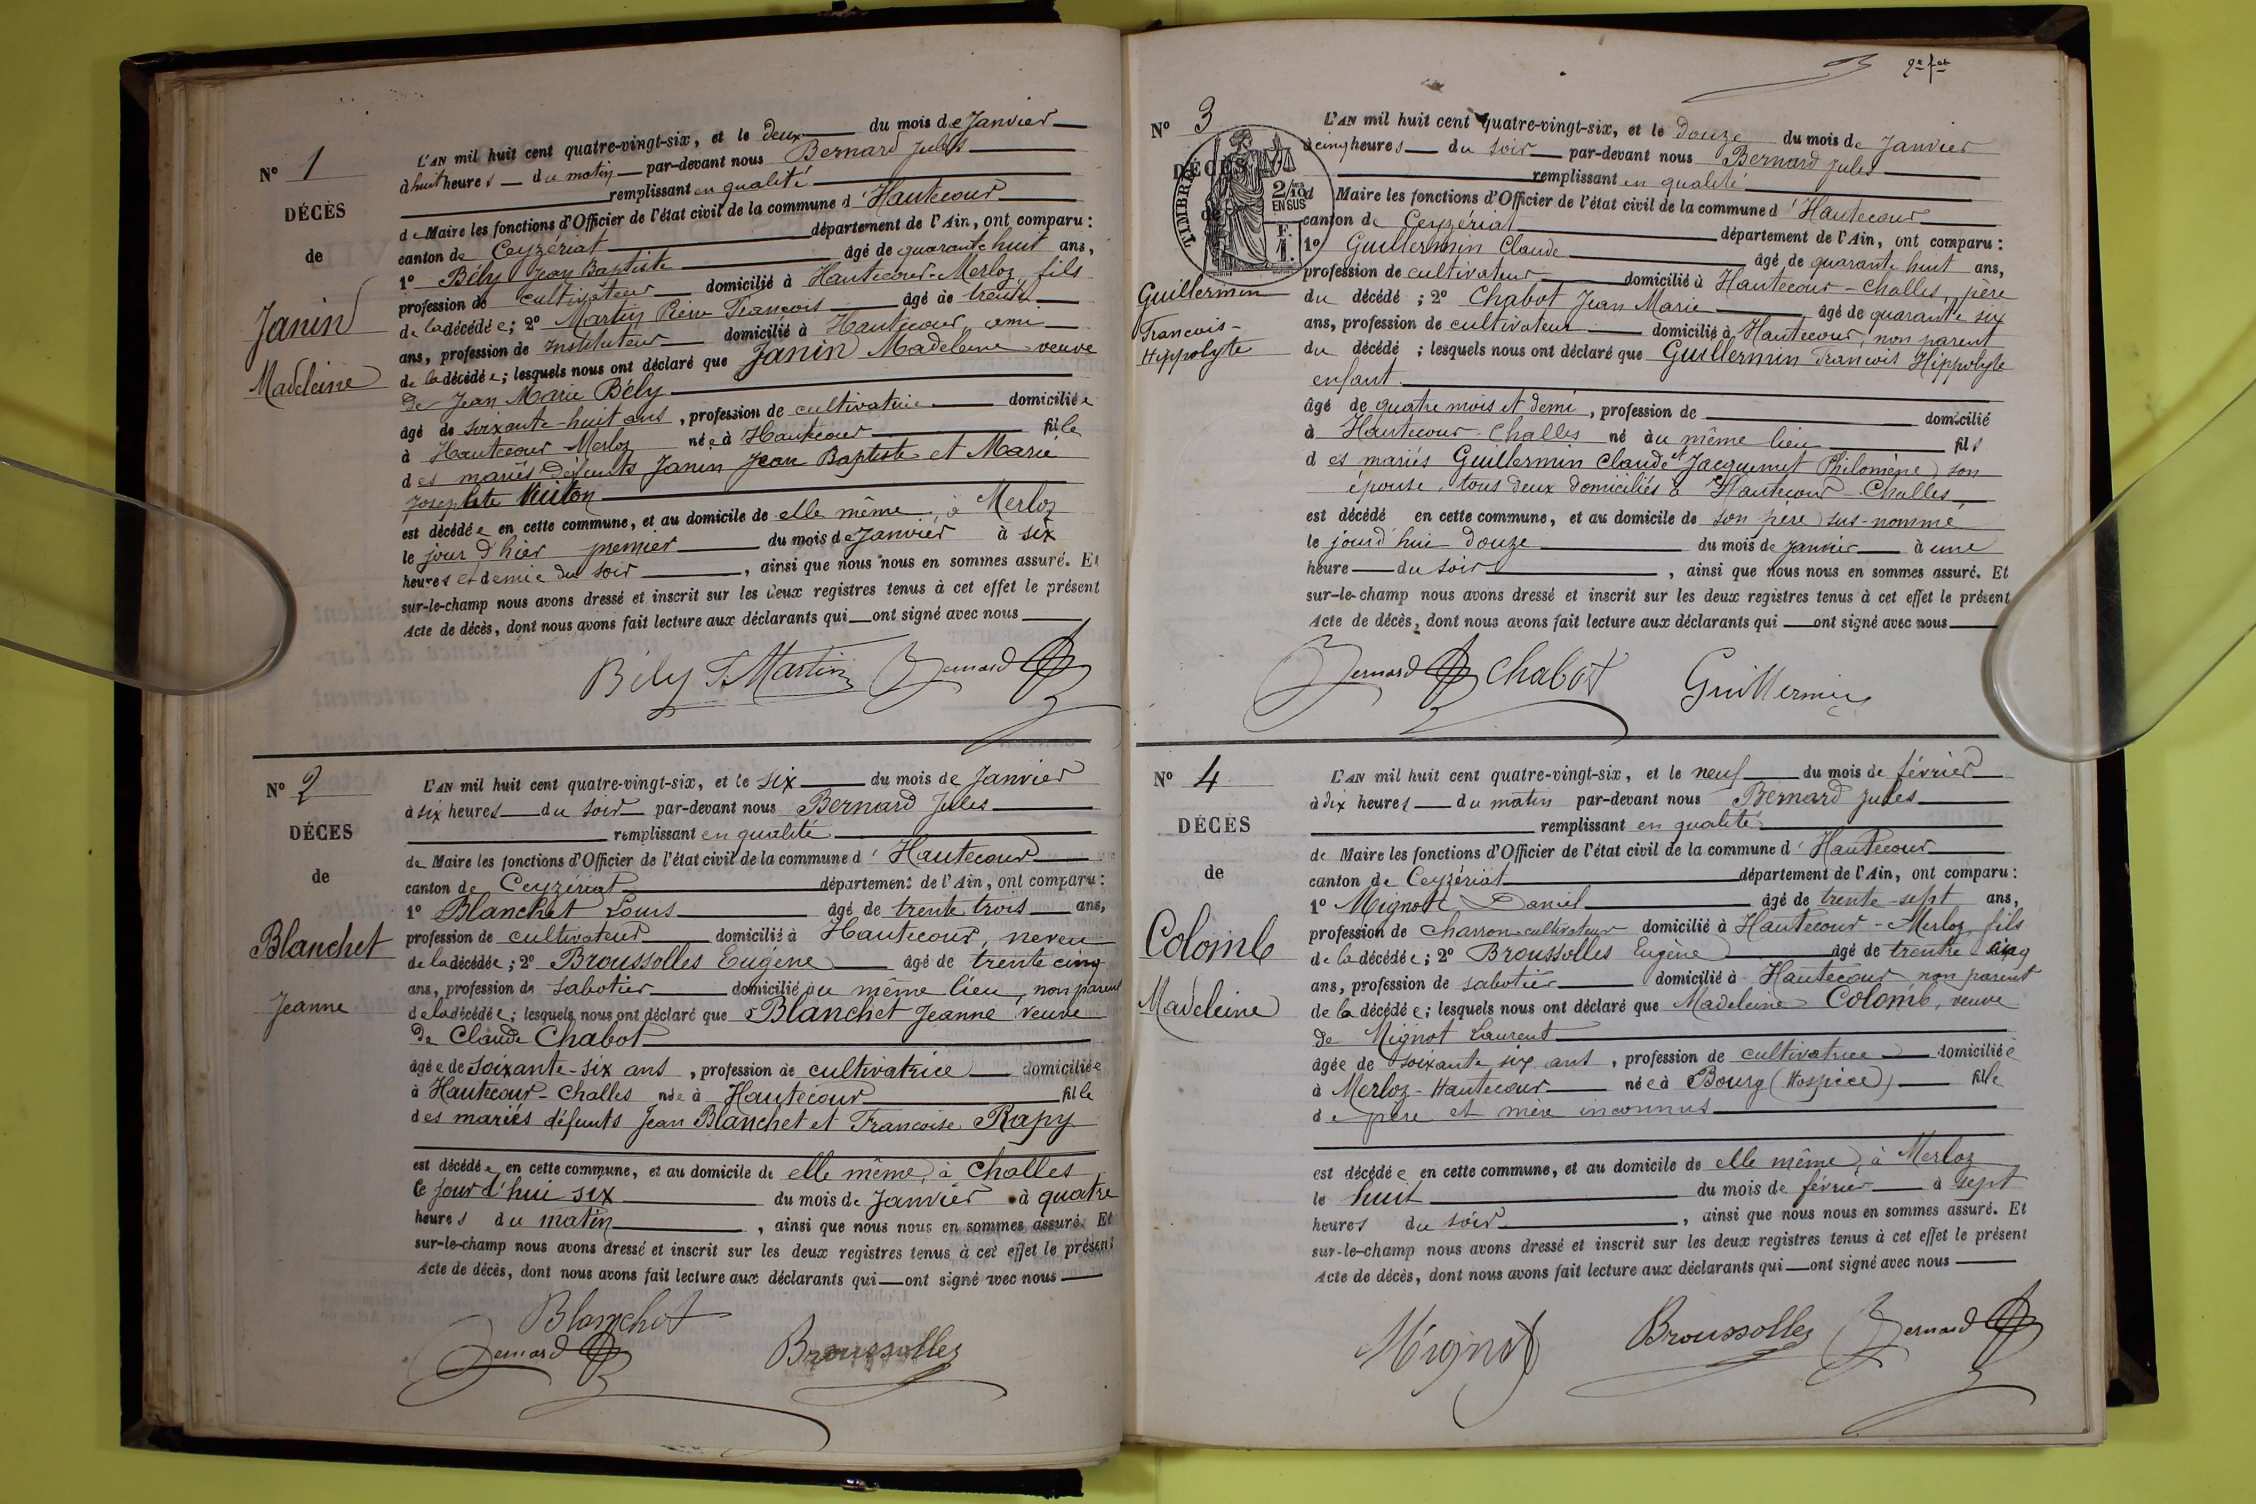 N° 1
DÉCÈS
de
Janin
Madeleine
L'AN mil huit cent quatre-vingt-six, et le deux du mois de Janvier
à huit heures du matin par-devant nous Bernard Jules
remplissant en qualité
de Maire les fonctions d'Officier de l'état civil de la commune d'Hautecour
canton de Ceyzériat département de l'Ain, ont comparu :
1° Bély Jean Baptiste âgé de quarante huit ans,
profession de cultivateur domicilié à Hautecour-Merloz, fils
de la décédée ; 2° Martin Pierre François âgé de trente
ans, profession de Instituteur domicilié à Hautecour, ami
de la décédée ; lesquels nous ont déclaré que Janin Madeleine veuve
de Jean Marie Bély
âgé de soixante-huit ans, profession de cultivatrice domiciliée
à Hautecour-Merloz née à Hautecour fille
des mariés défunts Janin Jean Baptiste et Marie
Josephte
est décédée en cette commune, et au domicile de elle même, à Merloz
le jour d'hier premier du mois de Janvier à six
heures et demie du soir, ainsi que nous nous en sommes assuré. Et
sur-le-champ nous avons dressé et inscrit sur les deux registres tenus à cet effet le présent
Acte de décès, dont nous avons fait lecture aux déclarants qui ont signé avec nous
Bély F. Martin Bernard
N° 2
DÉCES
de
Blanchet
Jeanne
L'AN mil huit cent quatre-vingt-six, et le six du mois de Janvier
à six heures du soir par-devant nous Bernard Jules
remplissant en qualité
de Maire les fonctions d'Officier de l'état civil de la commune d'Hautecour
canton de Ceyzériat département de l'Ain, ont comparu :
1° Blanchet Louis âgé de trente trois ans,
profession de cultivateur domicilié à Hautecour, neveu
de la décédée ; 2° Broussolles Eugène âgé de trente cinq
ans, profession de sabotier domicilié au même lieu, non parent
de la décédée ; lesquels nous ont déclaré que Blanchet Jeanne veuve
de Claude Chabot
âgée de soixante-six ans, profession de cultivatrice domiciliée
à Hautecour-Challes née à Hautecour fille
des mariés défunts Jean Blanchet et Francoise Rapy
est décédée en cette commune, et au domicile de elle même, à Challes
le jour d'hui six du mois de Janvier à quatre
heures du matin, ainsi que nous nous en sommes assuré. Et
sur-le-champ nous avons dressé et inscrit sur les deux registres tenus à cet effet le présent
Acte de décès, dont nous avons fait lecture aux déclarants qui ont signé avec nous
Blanchet
Bernard Broussolles
N° 3
DÉCÈS
de
TIMBRE
2/10 EN SUS
F. 1.
Guillermin
Francois-
Hippolyte
L'AN mil huit cent quatre-vingt-six, et le douze du mois de Janvier
à cinq heures du soir par-devant nous Bernard Jules
remplissant en qualité
Maire les fonctions d'Officier de l'état civil de la commune d'Hautecour
canton de Ceyzériat département de l'Ain, ont comparu :
1° Guillermin Claude âgé de quarante huit ans,
profession de cultivateur domicilié à Hautecour-Challes, père
du décédé ; 2° Chabot Jean Marie âgé de quarante six
ans, profession de cultivateur domicilié à Hautecour, non parent
du décédé ; lesquels nous ont déclaré que Guillermin Francois Hippolyte
enfant
âgé de quatre mois et demi, profession de domicilié
à Hautecour-Challes né au même lieu fils
des mariés Guillermin Claude et Jacquemet Philomène son
épouse, tous deux domiciliés à Hautecour-Challes
est décédé en cette commune, et au domicile de son père sus-nommé
le jourd'hui douze du mois de Janvier à une
heure du soir, ainsi que nous nous en sommes assuré. Et
sur-le-champ nous avons dressé et inscrit sur les deux registres tenus à cet effet le présent
Acte de décès, dont nous avons fait lecture aux déclarants qui ont signé avec nous
Bernard Chabot Guillermin
N° 4
DÉCÈS
de
Colomb
Madeleine
L'AN mil huit cent quatre-vingt-six, et le neuf du mois de février
à dix heures du matin par-devant nous Bernard Jules
remplissant en qualité
de Maire les fonctions d'Officier de l'état civil de la commune d'Hautecour
canton de Ceyzériat département de l'Ain, ont comparu :
1° Mignot Daniel âgé de trente-sept ans,
profession de Charron-cultivateur domicilié à Hautecour-Merloz, fils
de la décédée ; 2° Broussolles Eugène âgé de trentre cinq
ans, profession de sabotier domicilié à Hautecour non parent
de la décédée ; lesquels nous ont déclaré que Madeleine Colomb, veuve
de Mignot Laurent
âgée de soixante six ans, profession de cultivatrice domiciliée
à Merloz-Hautecour née à Bourg (Hospice) fille
de père et mère inconnus
est décédée en cette commune, et au domicile de elle même, à Merloz
le huit du mois de février à sept
heures du soir, ainsi que nous nous en sommes assuré. Et
sur-le-champ nous avons dressé et inscrit sur les deux registres tenus à cet effet le présent
Acte de décès, dont nous avons fait lecture aux déclarants qui ont signé avec nous
Mignot Broussolles Bernard